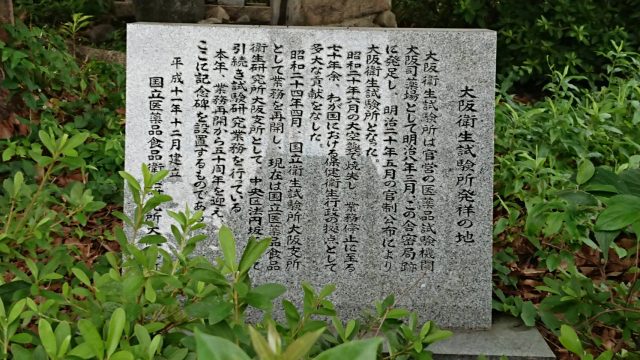 大阪衛生試験所発祥の地
大阪衛生試験所は官営の医薬品試験機関
大阪司薬場として明治八年二月、この舎密局跡
に発足し、明治二十年五月の官制公布により
大阪衛生試験所となった。
昭和二十年六月の大空襲で焼失し、業務停止に至る
七十年余、わが国における保健衛生行政の拠点として
多大な貢献をなした。
昭和二十四年四月、国立衛生試験所大阪支所
として業務を再開し、現在は国立医薬品食品
衛生研究所大阪支所として、中央区法円坂
引続き試験研究業務を行っている。
本年、業務再開から五十周年を迎え、
ここに記念碑を設置するものである
平成十一年十二月建立
国立医薬品食品衛生研究所大